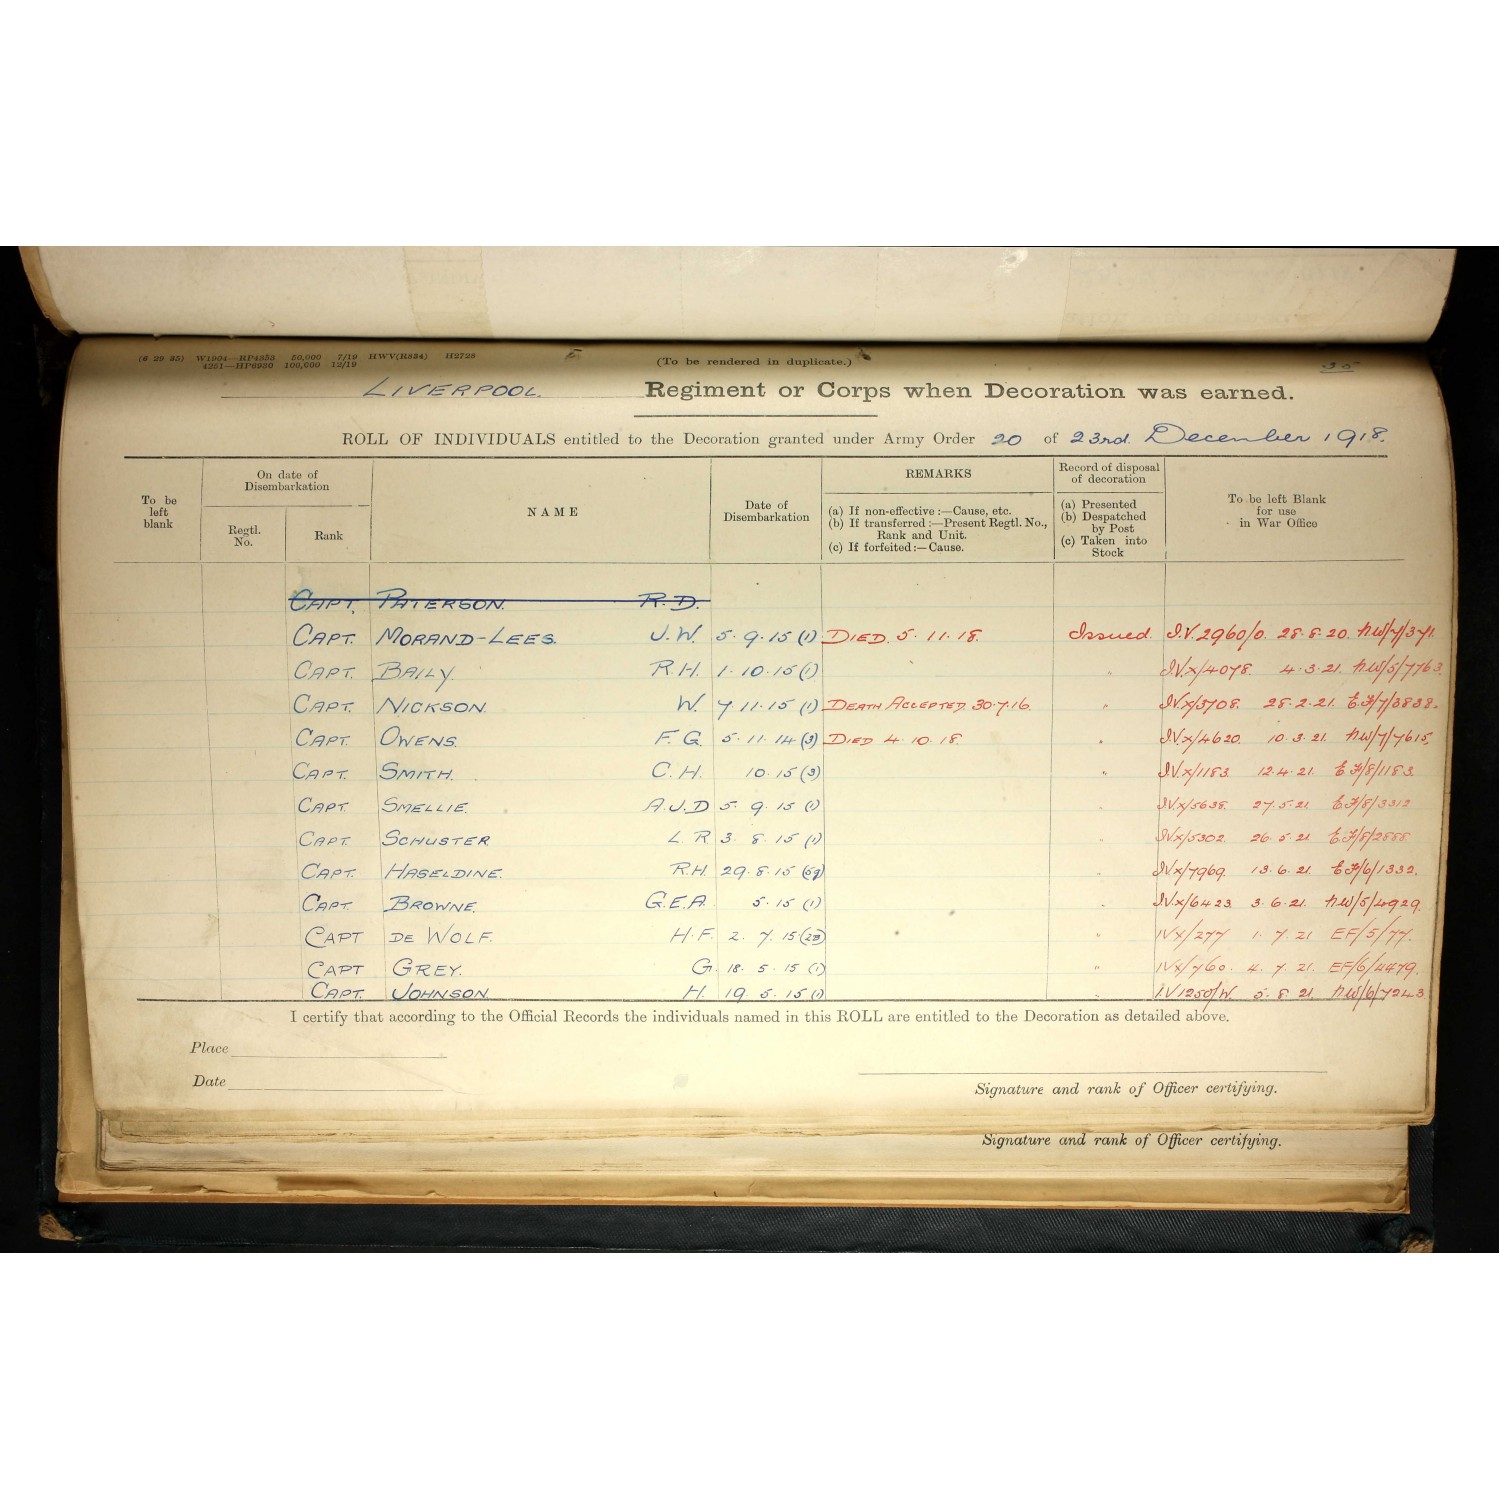 (6 29 35) W1904—RP4353 50,000 7/19 HWV(R834) H2728
4251—HP6930 100,000 12/19
(To be rendered in duplicate.)
LIVERPOOL. Regiment or Corps when Decoration was earned.
ROLL OF INDIVIDUALS entitled to the Decoration granted under Army Order 20 of 23rd December 1918.
To be left blank
On date of Disembarkation
Regtl. No.
Rank
NAME
Date of Disembarkation
REMARKS
(a) If non-effective:—Cause, etc.
(b) If transferred:—Present Regtl. No., Rank and Unit.
(c) If forfeited:—Cause.
Record of disposal of decoration
(a) Presented
(b) Despatched by Post
(c) Taken into Stock
To be left Blank for use in War Office
CAPT. PATERSON. R.D.
CAPT. MORAND-LEES. J.W. 5.9.15 (1) DIED. 5.11.18. Issued. I.V.2960/0. 28.8.20. NW/7/371.
CAPT. BAILY. R.H. 1.10.15 (1) " I.V.X/4078. 4.3.21. NW/5/7763
CAPT. NICKSON. W. 7.11.15 (1) DEATH ACCEPTED. 30.7.16. " I.V.X/3708. 28.2.21. E.F/7/3838.
CAPT. OWENS. F.G. 5.11.14 (3) DIED 4.10.18. " I.V.X/4620. 10.3.21. NW/7/7615.
CAPT. SMITH. C.H. 10.15 (3) " I.V.X/1183 12.4.21. E.F/8/1183.
CAPT. SMELLIE. A.J.D 5.9.15 (1) " I.V.X/5638. 27.5.21 E.F/8/3312
CAPT. SCHUSTER L.R 3.8.15 (1) " I.V.X/5302. 26.5.21 E.F/8/2888
CAPT. HASELDINE. R.H. 29.8.15 " I.V.X/7969. 13.6.21. E.F/6/1332.
CAPT. BROWNE. G.E.A. 5.15 (1) " I.V.X/6423 3.6.21. NW/5/4929.
CAPT DE WOLF. H.F. 2.7.15 " IVX/277 1.7.21 EF/5/77.
CAPT GREY. G. 18.5.15 (1) " IVX/760. 4.7.21. EF/6/4479.
CAPT. JOHNSON. H. 19.5.15 (1) " I.V1250/W. 5.8.21. NW/6/7243
I certify that according to the Official Records the individuals named in this ROLL are entitled to the Decoration as detailed above.
Place
Date
Signature and rank of Officer certifying.
Signature and rank of Officer certifying.